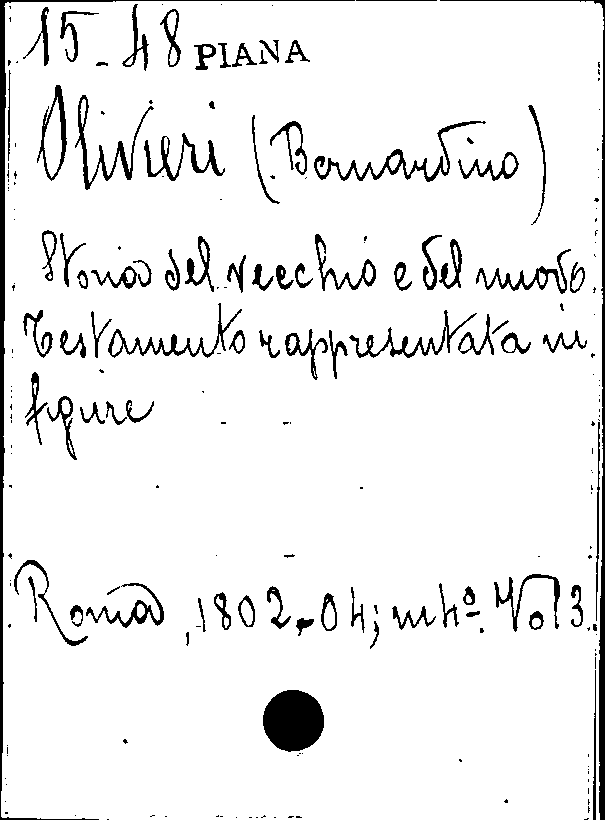 15-48 PIANA
Olivieri (Bernardino)
Storia del vecchio e del nuovo
Testamento rappresentata in
figure
Roma, 1802-04; in 4º. Vol 3